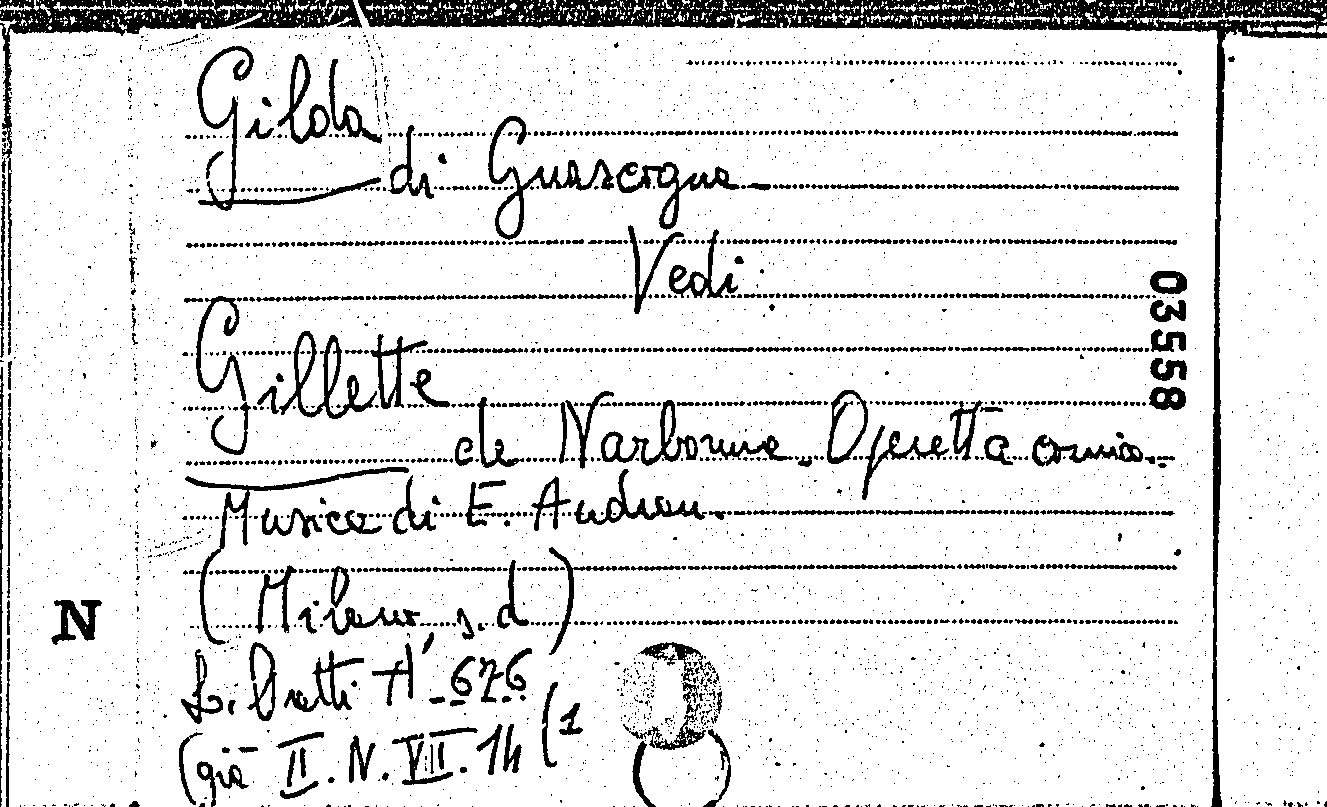 Gilda
di Guascogna -
Vedi
Gillette
de Narbonne. Operetta comica.
Musica di E. Audran.
(Milano, s.d)
N
L. Dratti H' 676
(già II. N. VII. 14 (1
03558